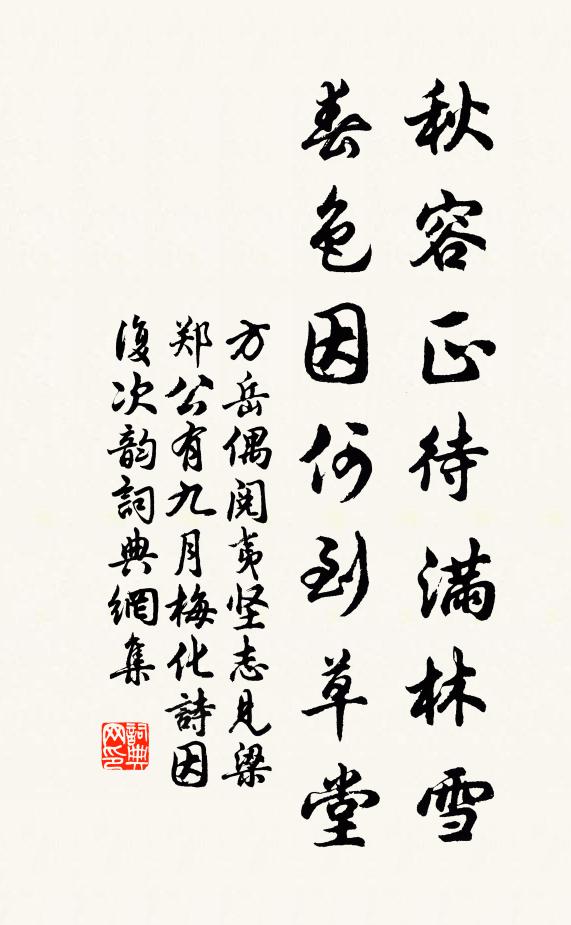 秋容正待满林雪
春色因何到草堂
方岳偶阅夷坚志见梁
郑公有九月梅化詩因
復次韵詞典網集
詞典网印